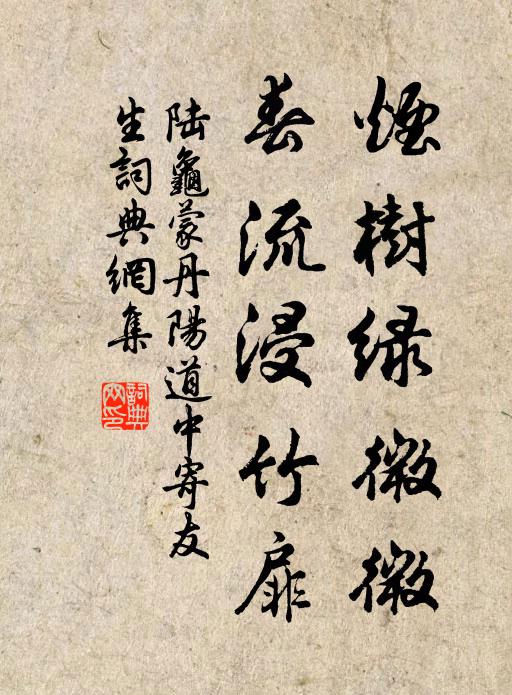 煙樹綠微微
春流浸竹扉
陆龜蒙丹陽道中寄友
生詞典網集
詞典
网印